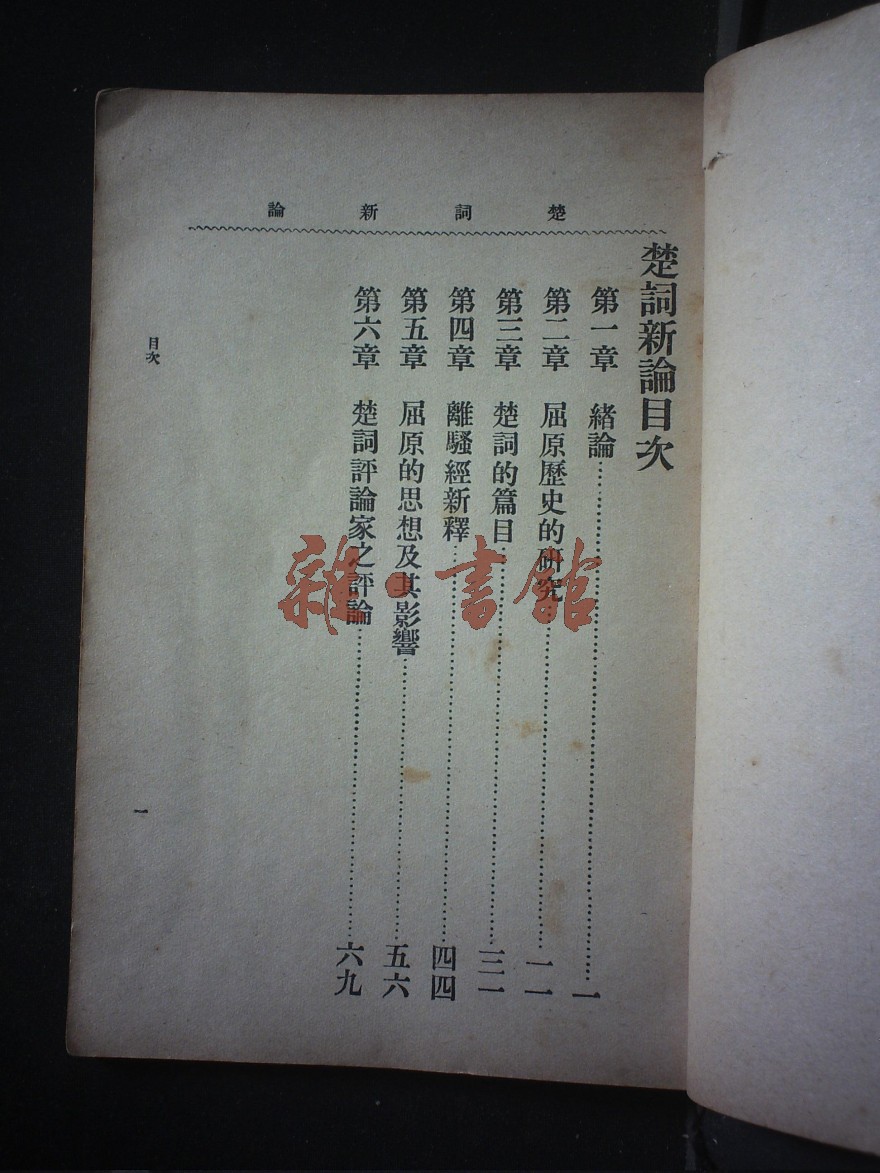 楚詞新論
楚詞新論目次
第一章　緒論…………一
第二章　屈原歷史的研究…………一一
第三章　楚詞的篇目…………三一
第四章　離騷經新釋…………四四
第五章　屈原的思想及其影響…………五六
第六章　楚詞評論家之評論…………六九
目次
一
雜·書館